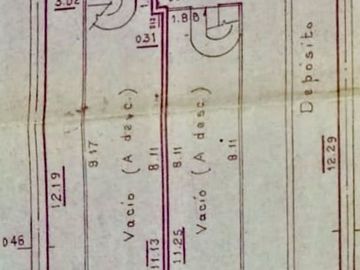 1.80
0.31
Depósito
Vacío (A desc.)
Vacío (A desc.)
8.17
8.11
8.11
8.11
12.19
12.29
0.46
11.13
11.25